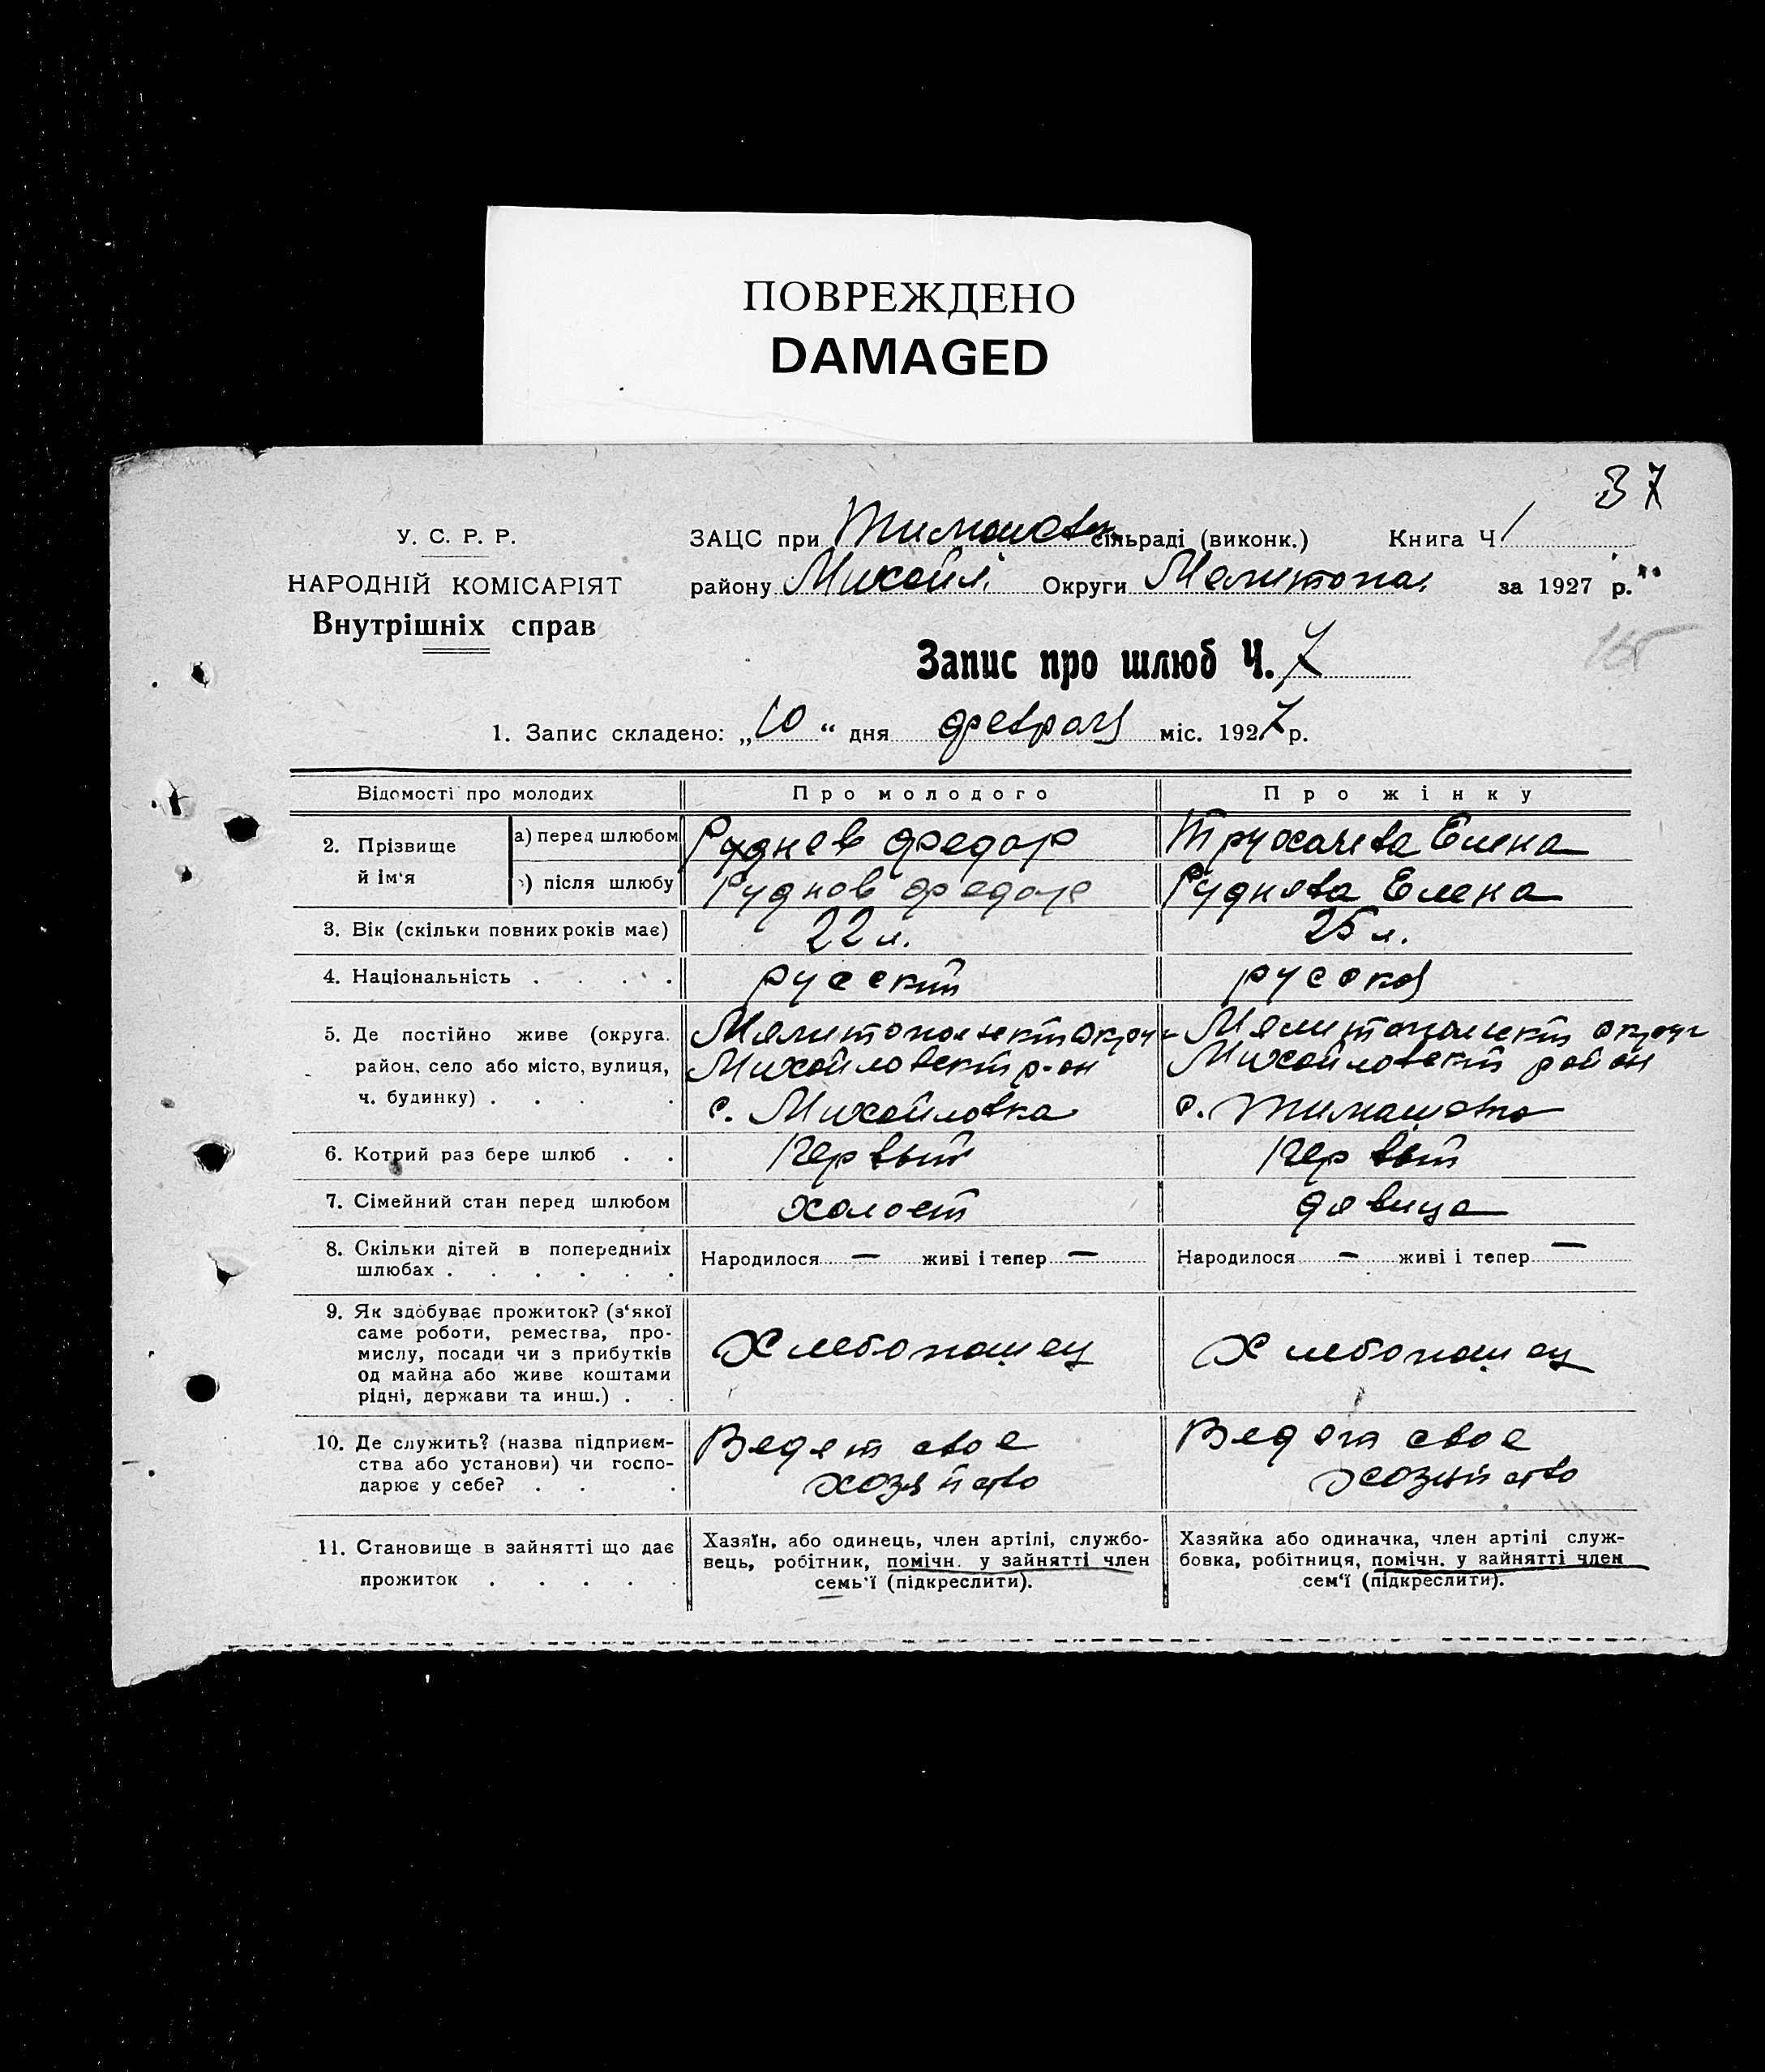 ПОВРЕЖДЕНО
DAMAGED
37
У. С. Р. Р.
НАРОДНІЙ КОМІСАРІЯТ
Внутрішніх справ
ЗАЦС при Тимашевк сільраді (виконк.) Книга Ч 1
району Михайл. Округи Мелитопол. за 1927 р.
165
Запис про шлюб Ч. 7
1. Запис складено: „10“ дня февраля міс. 1927 р.
Відомості про молодих Про молодого Про жінку
2. Прізвище й ім‘я
а) перед шлюбом Руднев Федор Трухачева Елена
) після шлюбу Руднев Федор Руднева Елена
3. Вік (скільки повних років має) 22 л. 25 л.
4. Національність . . . . русский русская
5. Де постійно живе (округа. Мелитопольский округ Мелитопольский округ
район, село або місто, вулиця, Михайловский р-он Михайловский район
ч. будинку) . . . . с. Михайловка с. Тимашевка
6. Котрий раз бере шлюб . . Первый Первый
7. Сімейний стан перед шлюбом холост девица
8. Скільки дітей в попередниіх
шлюбах . . . . . . Народилося — живі і тепер — Народилося — живі і тепер —
9. Як здобуває прожиток? (з‘якої
саме роботи, ремества, про-
мислу, посади чи з прибутків Хлебопашец Хлебопашец
од майна або живе коштами
рідні, держави та инш.) . .
10. Де служить? (назва підприєм- Ведет свое Ведет свое
ства або установи) чи госпо- хозяйство хозяйство
дарює у себе? . . .
11. Становище в зайнятті що дає
прожиток . . . . .
Хазяїн, або одинець, член артілі, службо-
вець, робітник, помічн. у зайнятті член
семь‘ї (підкреслити).
Хазяйка або одиначка, член артілі служ-
бовка, робітниця, помічн. у зайнятті член
сем‘ї (підкреслити).